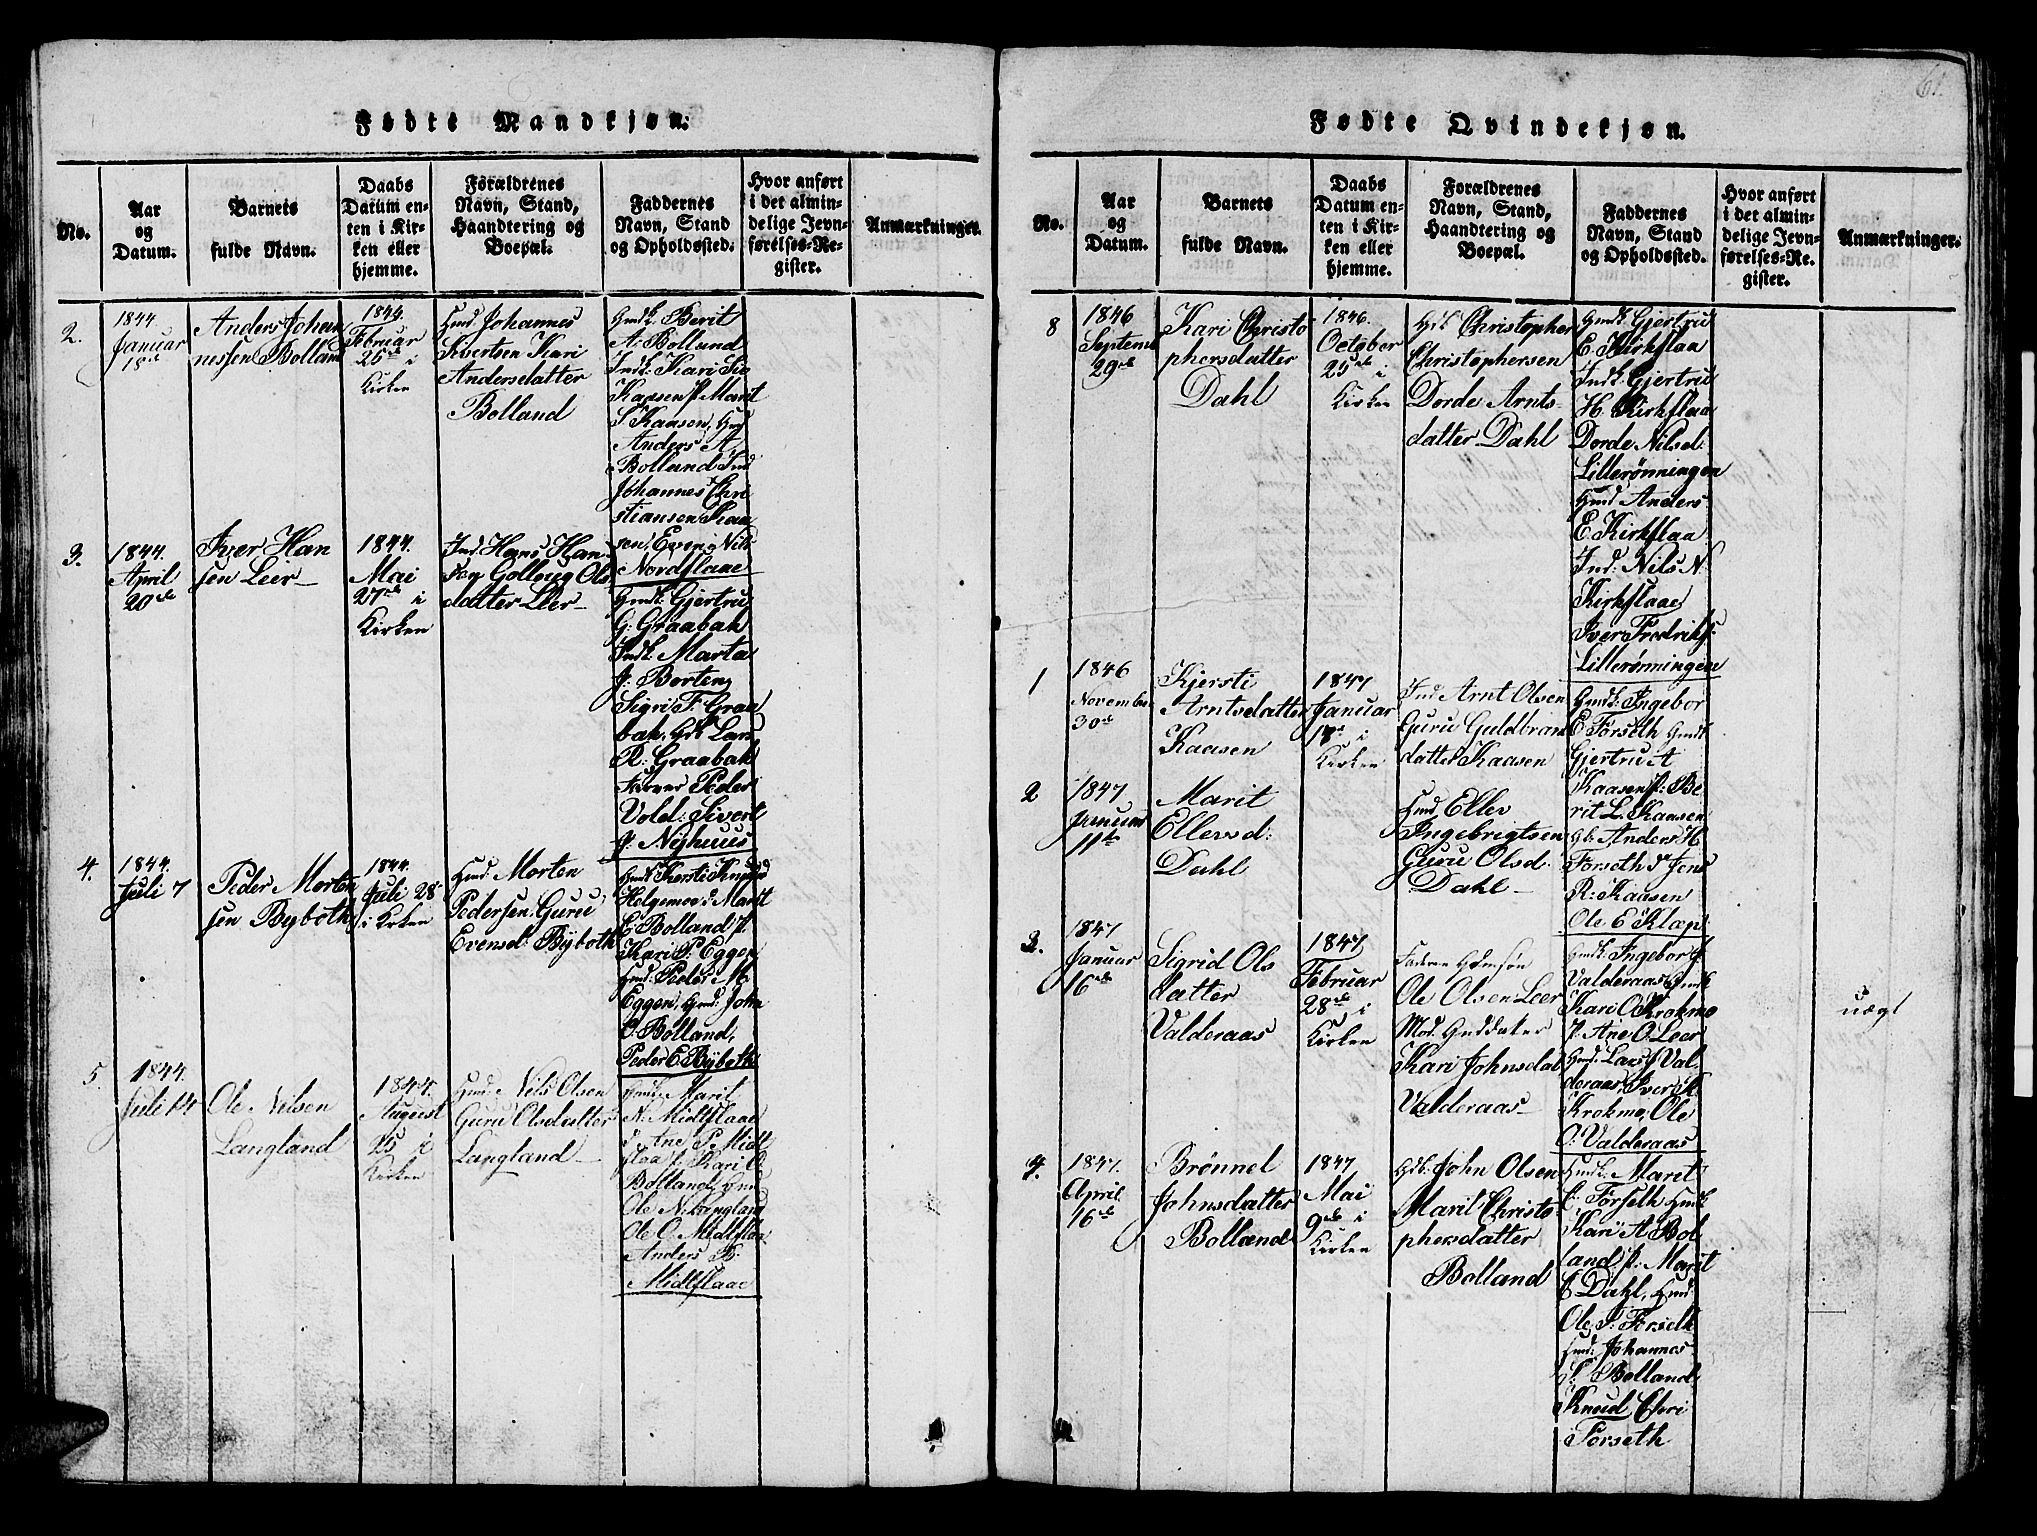 Fødte Mandkjøn.
No.
Aar
og
Datum.
Barnets
fulde Navn.
Daabs
Datum en-
ten i Kir-
ken eller
hjemme.
Forældrenes
Navn, Stand,
Haandtering og
Boepæl.
Faddernes
Navn, Stand
og Opholdssted.
Hvor anført
i det almin-
delige Jevn-
førelses-Re-
gister.
Anmærkninger.
2.
1844
Januar
18de
Anders Johan
nessen Bolland
1844.
Februar
25de i
Kirken
Hmd Johannes
Sivertsen Kari
Andersdatter
Bolland
Gmdk. Berit
A. Bolland
Indk. Kari
Kaasen P. Marit
S Kaasen, Hmd
Anders A
Bolland Ind
Johannes Chri
stiansen Kaa
sen, Even Nils
Nordflaae
3.
1844.
April
20de
Iver Han
sen Leer
1844.
Mai
27de i
Kirken
Ind. Hans Han
sen Gollaug Ols
datter Leer
Gmdk. Gjertru
G. Graabak
Indk. Marta
J. Borten
Sigri F. Graa
bak, Gdb Lars
R. Graabak
Peder
Vold. Sivert
J. Nyhuus
4.
1844.
Juli 7
Peder Morten
sen Byboth
1844.
Juli 28
i Kirken
Hmd Morten
Pedersen Guru
Evensd. Byboth
Gmdk Kersti Knuds
Helgemo d Marit
E Bolland P.
Kari P. Eggen
Hmd. Peder M.
Eggen, Hmd. John
O Bolland,
Peder E Byboth
5.
1844.
Juli 14
Ole Nilsen
Langland
1844.
August
25 i
Kirken
Hmd. Nils Olsen
Guru Olsdatter
Langland
Hmdk. Marit
N. Midtflaae
d Ane P. Midt
flaa P. Kari O
Bolland, Hmd
Ole N. Langland
Ole O. Midtflaa
Anders P.
Midtflaae
61.
Fødte Qvindekjøn.
No.
Aar
og
Datum.
Barnets
fulde Navn.
Daabs
Datum en-
ten i Kir-
ken eller
hjemme.
Forældrenes
Navn, Stand,
Haandtering og
Boepæl.
Faddernes
Navn, Stand
og Opholdssted.
Hvor anført
i det almin-
delige Jevn-
førelses-Re-
gister.
Anmærkninger.
8
1846
Septemb
29de
Kari Christo
phersdatter
Dahl
1846.
October
25de i
Kirken
Gdb Christopher
Christophersen
Dorde Arnts-
datter Dahl
Gmdk. Gjertru
E. Kirkflaa
Indk. Gjertru
H. Kirkflaa
Dorde Nilsd.
Lillerønningen
Hmd Anders
E. Kirkflaa
Ind. Nils N.
Kirkflaae
Iver Fredriks.
Lillerønningen
1
1846
November
30de
Kjersti
Arntsdatter
Kaasen
1847
Januar
18de i
Kirken
Ind Arnt Olsen
Guru Guldbran
datter Kaasen
Gmdk. Ingebor
E. Forseth Gmdk
Gjertru A
Kaasen P. Be
rit L. Kaasen
Gb. Anders H
Forseth d Jens
R. Kaasen
Ole E Klæp
2
1847
Januar
11te
Marit
Ellevsd.
Dahl
Hmd Ellev
Ingebrigtsen
Guru Olsd.
Dahl
3.
1847
Januar
16de
Sigrid Ols
datter
Valderaas
1847
Februar
28de i
Kirken
Faderen Gdmsøn
Ole Olsen Leer
Mod. Gmddatter
Kari Johnsdat
Valderaas
Gmdk. Ingebor J.
Valderaas Gmdk
Kari O Krokmo
P. Ane O. Leer
Gmd. Lars J Val-
deraas, Iver
Krokmo, Ole
O. Valderaas
uægt
4.
1847.
April.
16de
Brønnel
Johnsdatter
Bolland
1847
Mai
9de i
Kirken
Gdb. John Olsen
Marit Christo
phersdatter
Bolland
Hmdk. Maret
C. Forseth Hmdk
Kari A Bol
land, P. Marit
C Dahl, Hmd
Ole P. Forseth
Hmd. Johannes
S. Bolland
Knud Chri
Forseth